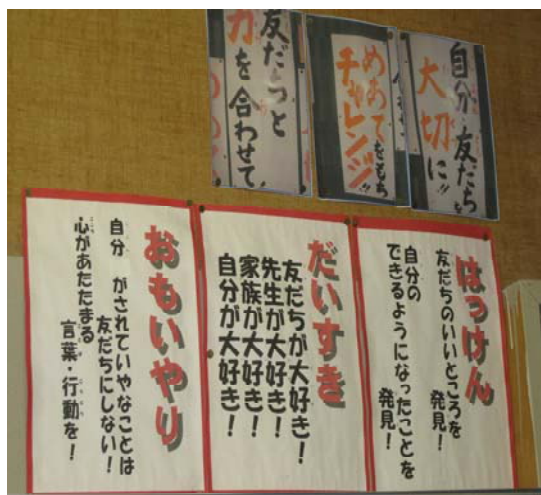 自分・友だちを
大切に!!
めあてをもち
チャレンジ!!
友だちと
力を合わせて、
はっけん
友だちのいいところを
発見!
自分の
できるようになったことを
発見!
だいすき
友だちが大好き!
先生が大好き!
家族が大好き!
自分が大好き!
おもいやり
自分 がされていやなことは
友だちにしない!
心があたたまる
言葉・行動を!